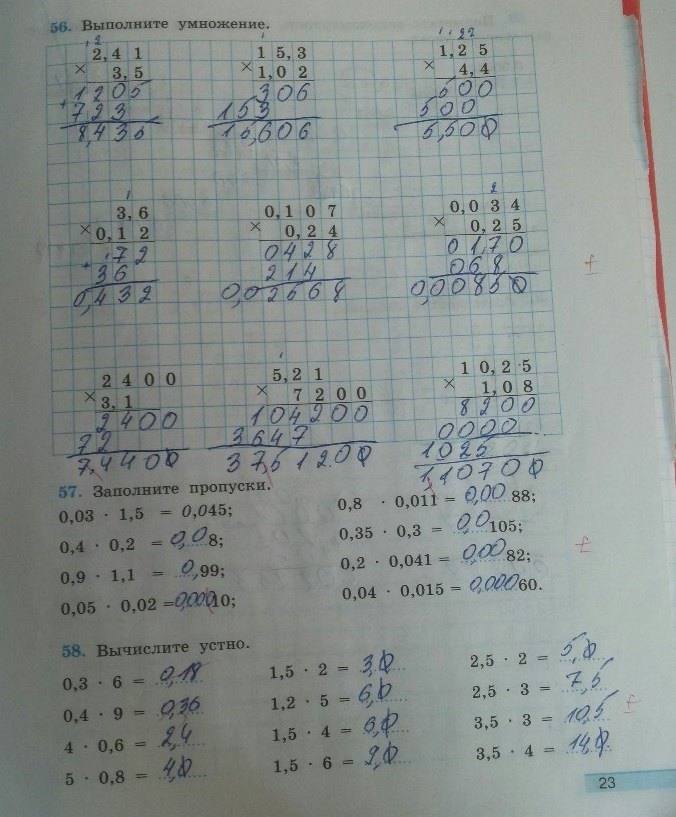 56. Выполните умножение.
2,41 15,3 1,25
× 3,5 × 1,02 × 4,4
1205 306 500
+ 723 153 500
8,435 15,606 5,500
3,6 0,107 0,034
× 0,12 × 0,24 × 0,25
72 0428 0170
+ 36 214 068
0,432 0,02568 0,00850
2400 5,21 10,25
× 3,1 × 7200 × 1,08
2400 104200 8200
72 3647 0000
7,4400 37,512.00 1025
1,10700
57. Заполните пропуски.
0,03 · 1,5 = 0,045; 0,8 · 0,011 = 0,0088;
0,4 · 0,2 = 0,08; 0,35 · 0,3 = 0,0105;
0,9 · 1,1 = 0,99; 0,2 · 0,041 = 0,0082;
0,05 · 0,02 = 0,00010; 0,04 · 0,015 = 0,00060.
58. Вычислите устно.
0,3 · 6 = 0,18 1,5 · 2 = 3,0 2,5 · 2 = 5,0
0,4 · 9 = 0,36 1,2 · 5 = 6,0 2,5 · 3 = 7,5
4 · 0,6 = 2,4 1,5 · 4 = 6,0 3,5 · 3 = 10,5
5 · 0,8 = 4,0 1,5 · 6 = 9,0 3,5 · 4 = 14,0
23